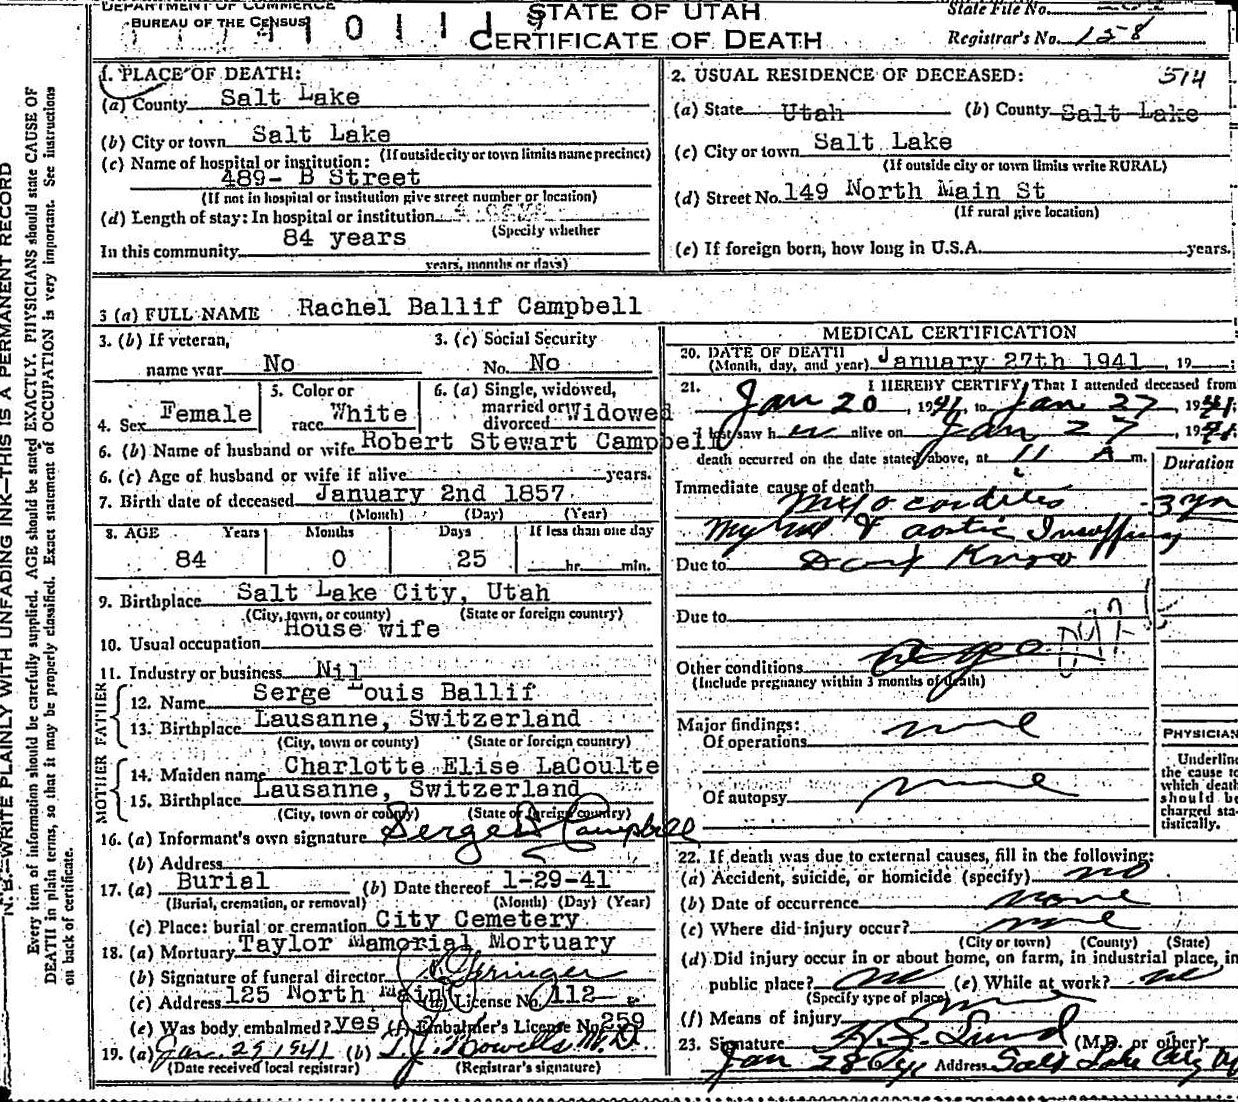 DEPARTMENT OF COMMERCE
BUREAU OF THE CENSUS
STATE OF UTAH
CERTIFICATE OF DEATH
State File No.
Registrar's No. 158
514
1. PLACE OF DEATH:
(a) County Salt Lake
(b) City or town Salt Lake
(If outside city or town limits name precinct)
(c) Name of hospital or institution:
489- B Street
(If not in hospital or institution give street number or location)
(d) Length of stay: In hospital or institution
(Specify whether
In this community 84 years
years, months or days)
2. USUAL RESIDENCE OF DECEASED:
(a) State Utah (b) County Salt Lake
(c) City or town Salt Lake
(If outside city or town limits write RURAL)
(d) Street No. 149 North Main St
(If rural give location)
(e) If foreign born, how long in U.S.A. years.
3 (a) FULL NAME Rachel Ballif Campbell
3. (b) If veteran, name war No
3. (c) Social Security No. No
4. Sex Female
5. Color or race White
6. (a) Single, widowed, married or divorced Widowed
6. (b) Name of husband or wife Robert Stewart Campbell
6. (c) Age of husband or wife if alive years.
7. Birth date of deceased January 2nd 1857
(Month) (Day) (Year)
8. AGE Years Months Days If less than one day
84 0 25 hr. min.
9. Birthplace Salt Lake City, Utah
(City, town, or county) (State or foreign country)
10. Usual occupation House wife
11. Industry or business Nil
FATHER
12. Name Serge Louis Ballif
13. Birthplace Lausanne, Switzerland
(City, town or county) (State or foreign country)
MOTHER
14. Maiden name Charlotte Elise LaCoulte
15. Birthplace Lausanne, Switzerland
(City, town or county) (State or foreign country)
16. (a) Informant's own signature Serge Campbell
(b) Address
17. (a) Burial (b) Date thereof 1-29-41
(Burial, cremation, or removal) (Month) (Day) (Year)
(c) Place: burial or cremation City Cemetery
18. (a) Mortuary Taylor Mamorial Mortuary
(b) Signature of funeral director
(c) Address 125 North Main License No. 112
(e) Was body embalmed? yes (f) Embalmer's License No. 259
19. (a) Jan. 29 1941 (b) T. J. Howells M.D.
(Date received local registrar) (Registrar's signature)
MEDICAL CERTIFICATION
20. DATE OF DEATH
(Month, day, and year) January 27th 1941, 19
21. I HEREBY CERTIFY, That I attended deceased from
Jan 20, 1941, to Jan 27, 1941;
I last saw her alive on Jan 27, 1941;
death occurred on the date stated above, at 11 A m.
Duration
Immediate cause of death
Myocarditis 3 yrs
& aortic
Due to Don't Know
Due to
Other conditions
(Include pregnancy within 3 months of death)
Major findings:
Of operations none
Of autopsy none
PHYSICIAN
Underline
the cause to
which death
should be
charged sta-
tistically.
22. If death was due to external causes, fill in the following:
(a) Accident, suicide, or homicide (specify) no
(b) Date of occurrence none
(c) Where did injury occur? none
(City or town) (County) (State)
(d) Did injury occur in or about home, on farm, in industrial place, in
public place? no (e) While at work? no
(Specify type of place)
(f) Means of injury
23. Signature Lund (M.D. or other)
Jan 28 Address Salt Lake City
N. B.—WRITE PLAINLY WITH UNFADING INK—THIS IS A PERMANENT RECORD
Every item of information should be carefully supplied. AGE should be stated EXACTLY. PHYSICIANS should state CAUSE OF
DEATH in plain terms, so that it may be properly classified. Exact statement of OCCUPATION is very important. See instructions
on back of certificate.